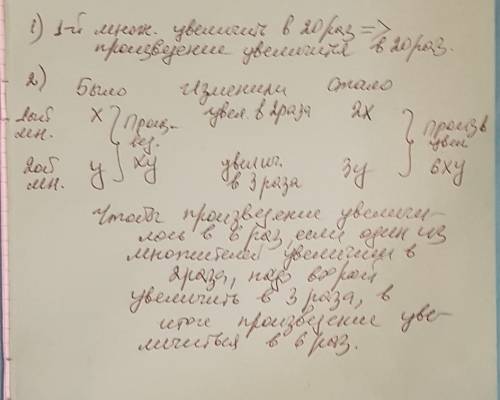 1) 1-й множ. увеличить в 20 раз =>
произведение увеличится в 20 раз.
2) Было Изменили Стало
1ый мн. X увел. в 2 раза 2X
Произвед. xy Произв увел 6xy
2ой мн. y увелич. в 3 раза 3y
Чтобы произведение увеличи-
лось в 6 раз, если один из
множителей увеличили в
2 раза, надо второй
увеличить в 3 раза, в
итоге произведение уве-
личиться в 6 раз.